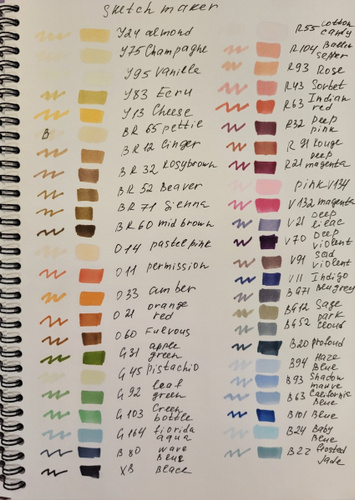 Sketch maker
Y24 almond
Y75 Champagne
Y95 Vanilla
Y83 Ecru
Y13 Cheese
BR 65 pettie
BR12 Ginger
BR 32 Rosybrown
BR 52 Beaver
BR 71 Sienna
BR 60 mid brown
O14 pastel pink
O11 permission
O33 amber
O21 orange
red
O60 Fulvous
G31 apple
green
G45 pistachio
G92 leaf
green
G103 Green
bottle
G164 florida
aqua
B80 wave
blue
XB Black
R55 cotton
candy
R104 Ballet
R93 Rose
R43 Sorbet
R63 Indian
red
R32 Deep
pink
R91 Rouge
R21 Deep
magenta
pink V134
V132 magenta
V21 Deep
lilac
V70 Deep
violent
V91 Sad
violent
V11 Indigo
B071 bluegrey
BG12 Sage
BG52 Dark
cloud
B20 profoud
B94 Haze
Blue
B93 Shadow
mauve
B63 California
Blue
B101 Blue
B24 Baby
Blue
B22 frosted
Jade